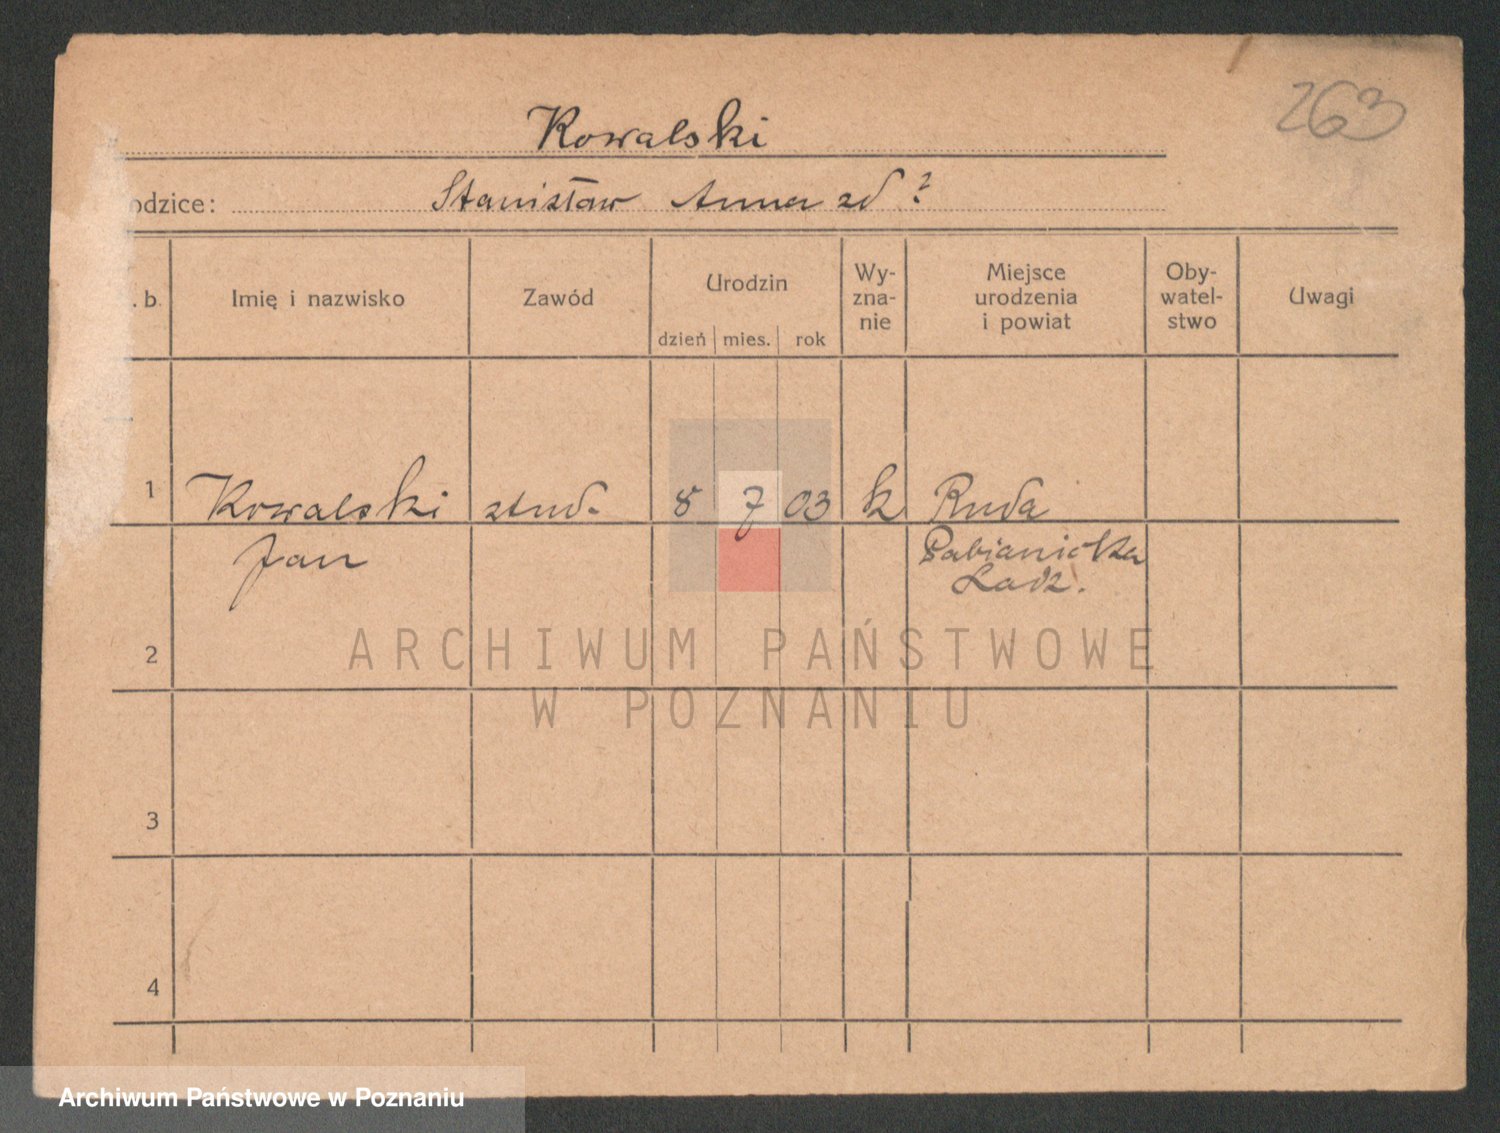 263
Kowalski
odzice: Stanisław Anna zd ?
. b. Imię i nazwisko Zawód Urodzin Wy- Miejsce Oby- Uwagi
zna- urodzenia watel-
dzień mies. rok nie i powiat stwo
1 Kowalski stud. 8 7 03 k Ruda
Jan Pabianicka
Ladz.
2
ARCHIWUM PAŃSTWOWE
W POZNANIU
3
4
Archiwum Państwowe w Poznaniu